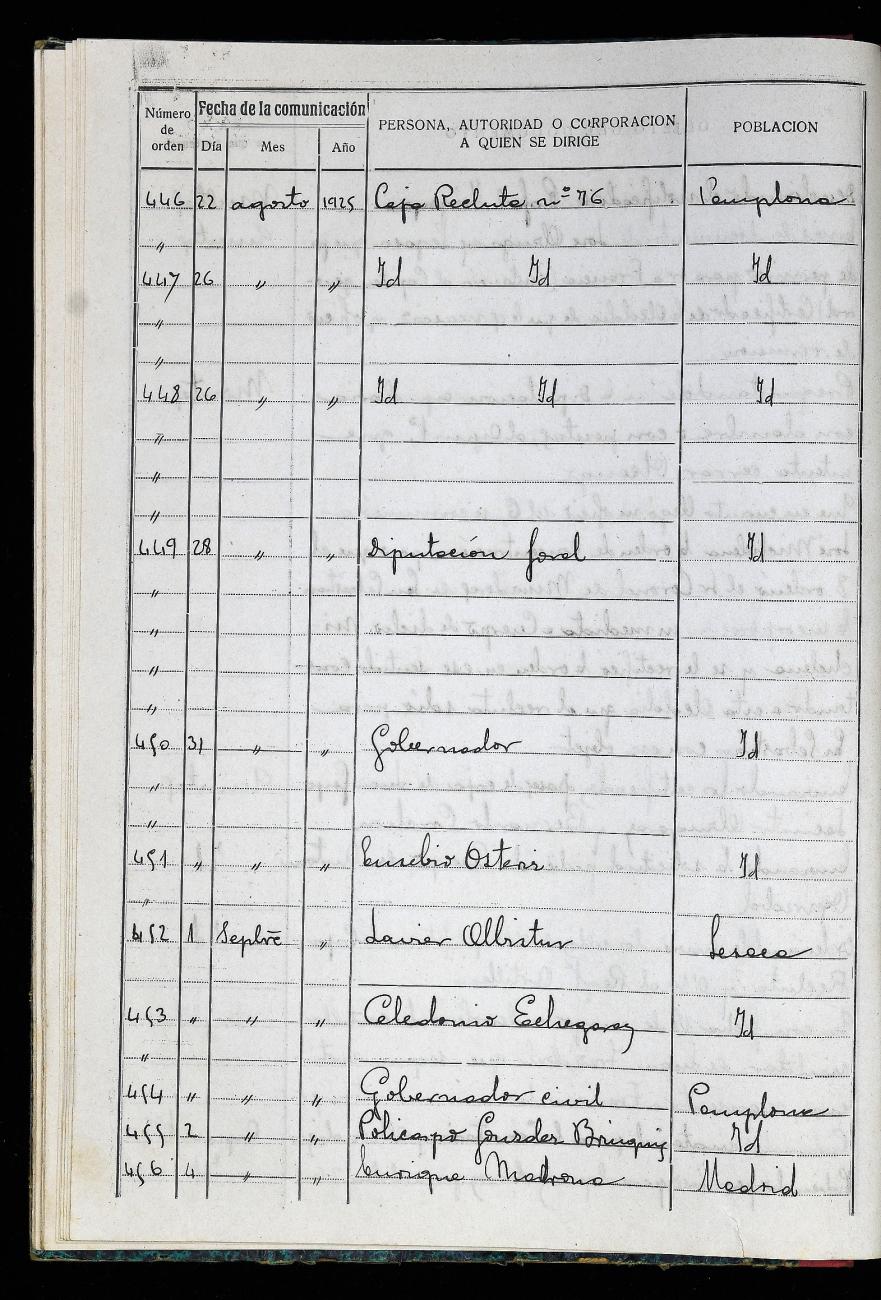 Número de orden Fecha de la comunicación PERSONA, AUTORIDAD O CORPORACION A QUIEN SE DIRIGE POBLACION
Día Mes Año
446 22 agosto 1925 Caja Recluta nº 76 Pamplona
"
447 26 " " Id Id Id
"
"
448 26 " " Id Id Id
"
"
"
449 28 " " Diputación foral Id
"
"
"
"
450 31 " " Gobernador Id
"
"
451 " " " Eusebio Osteriz Id
"
452 1 Sepbre " Javier Lesaca
453 " " " Celedonio Echegaray Id
"
454 " " " Gobernador civil Pamplona
455 2 " " Policarpo Id
456 4 " " Enrique Madrona Madrid